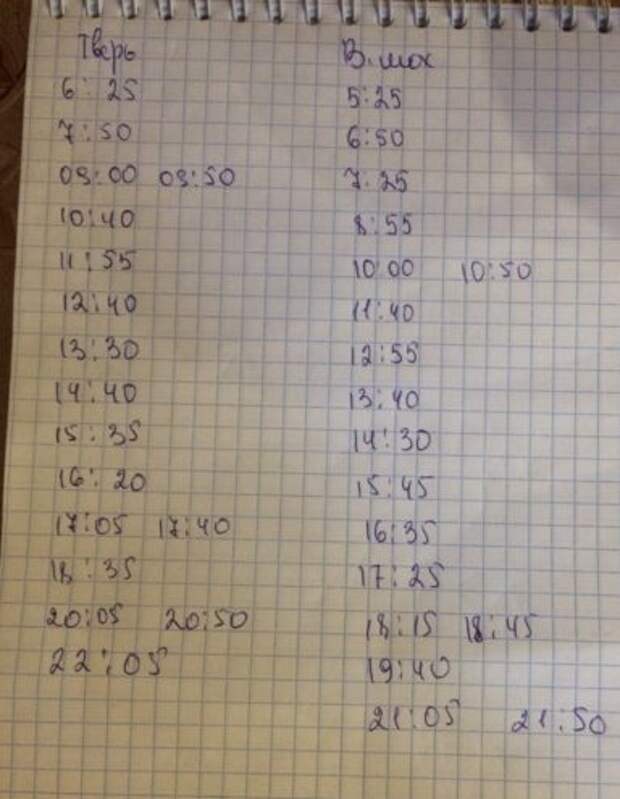 Тверь В. мох
6:25 5:25
7:50 6:50
09:00 09:50 7.25
10:40 8:55
11:55 10 00 10:50
12:40 11:40
13:30 12:55
14:40 13:40
15:35 14:30
16:20 15:45
17:05 17:40 16:35
18:35 17:25
20:05 20:50 18:15 18:45
22:05 19:40
21:05 21:50